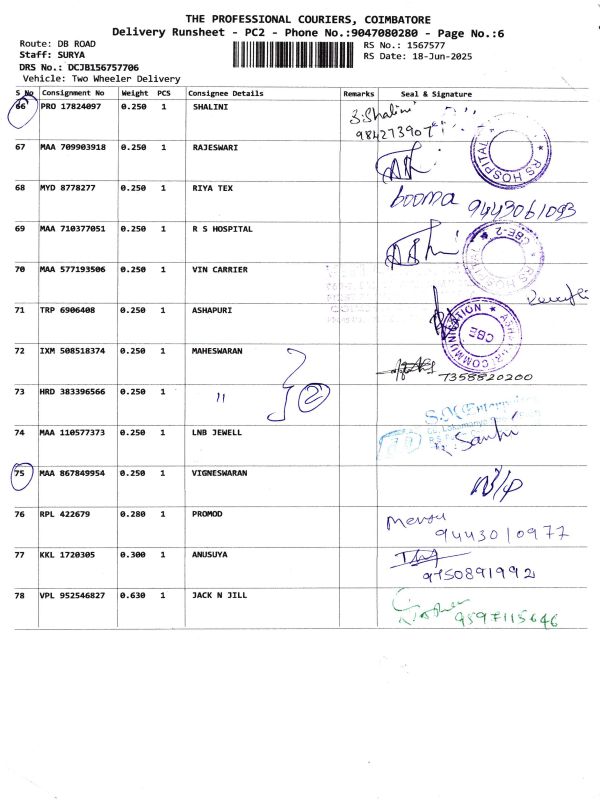 THE PROFESSIONAL COURIERS, COIMBATORE
Delivery Runsheet - PC2 - Phone No.:9047080280 - Page No.:6
Route: DB ROAD
RS No.: 1567577
Staff: SURYA
RS Date: 18-Jun-2025
DRS No.: DCJB156757706
Vehicle: Two Wheeler Delivery
S No Consignment No Weight PCS Consignee Details Remarks Seal & Signature
66 PRO 17824097 0.250 1 SHALINI S.Shalini
67 MAA 709903918 0.250 1 RAJESWARI RS HOSPITAL
68 MYD 8778277 0.250 1 RIYA TEX booma 9443061093
69 MAA 710377051 0.250 1 R S HOSPITAL RS HOSPITAL CBE-2
70 MAA 577193506 0.250 1 VIN CARRIER
71 TRP 6906408 0.250 1 ASHAPURI COMMUNICATION CBE
72 IXM 508518374 0.250 1 MAHESWARAN 7358820200
73 HRD 383396566 0.250 1 " 2
74 MAA 110577373 0.250 1 LNB JEWELL
75 MAA 867849954 0.250 1 VIGNESWARAN
76 RPL 422679 0.280 1 PROMOD 9443010977
77 KKL 1720305 0.300 1 ANUSUYA 9750891992
78 VPL 952546827 0.630 1 JACK N JILL 9597115646